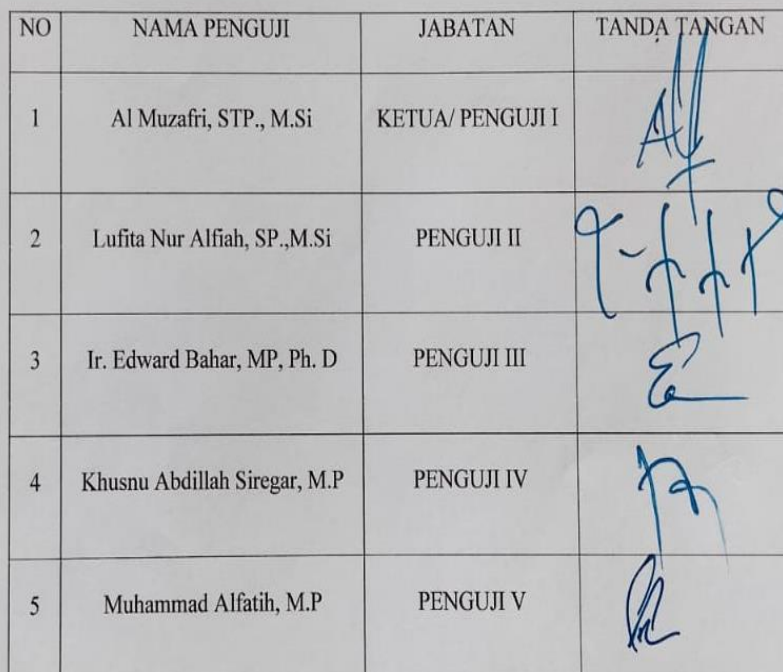 NO NAMA PENGUJI JABATAN TANDA TANGAN
1 Al Muzafri, STP., M.Si KETUA/ PENGUJI I
2 Lufita Nur Alfiah, SP.,M.Si PENGUJI II
3 Ir. Edward Bahar, MP, Ph. D PENGUJI III
4 Khusnu Abdillah Siregar, M.P PENGUJI IV
5 Muhammad Alfatih, M.P PENGUJI V